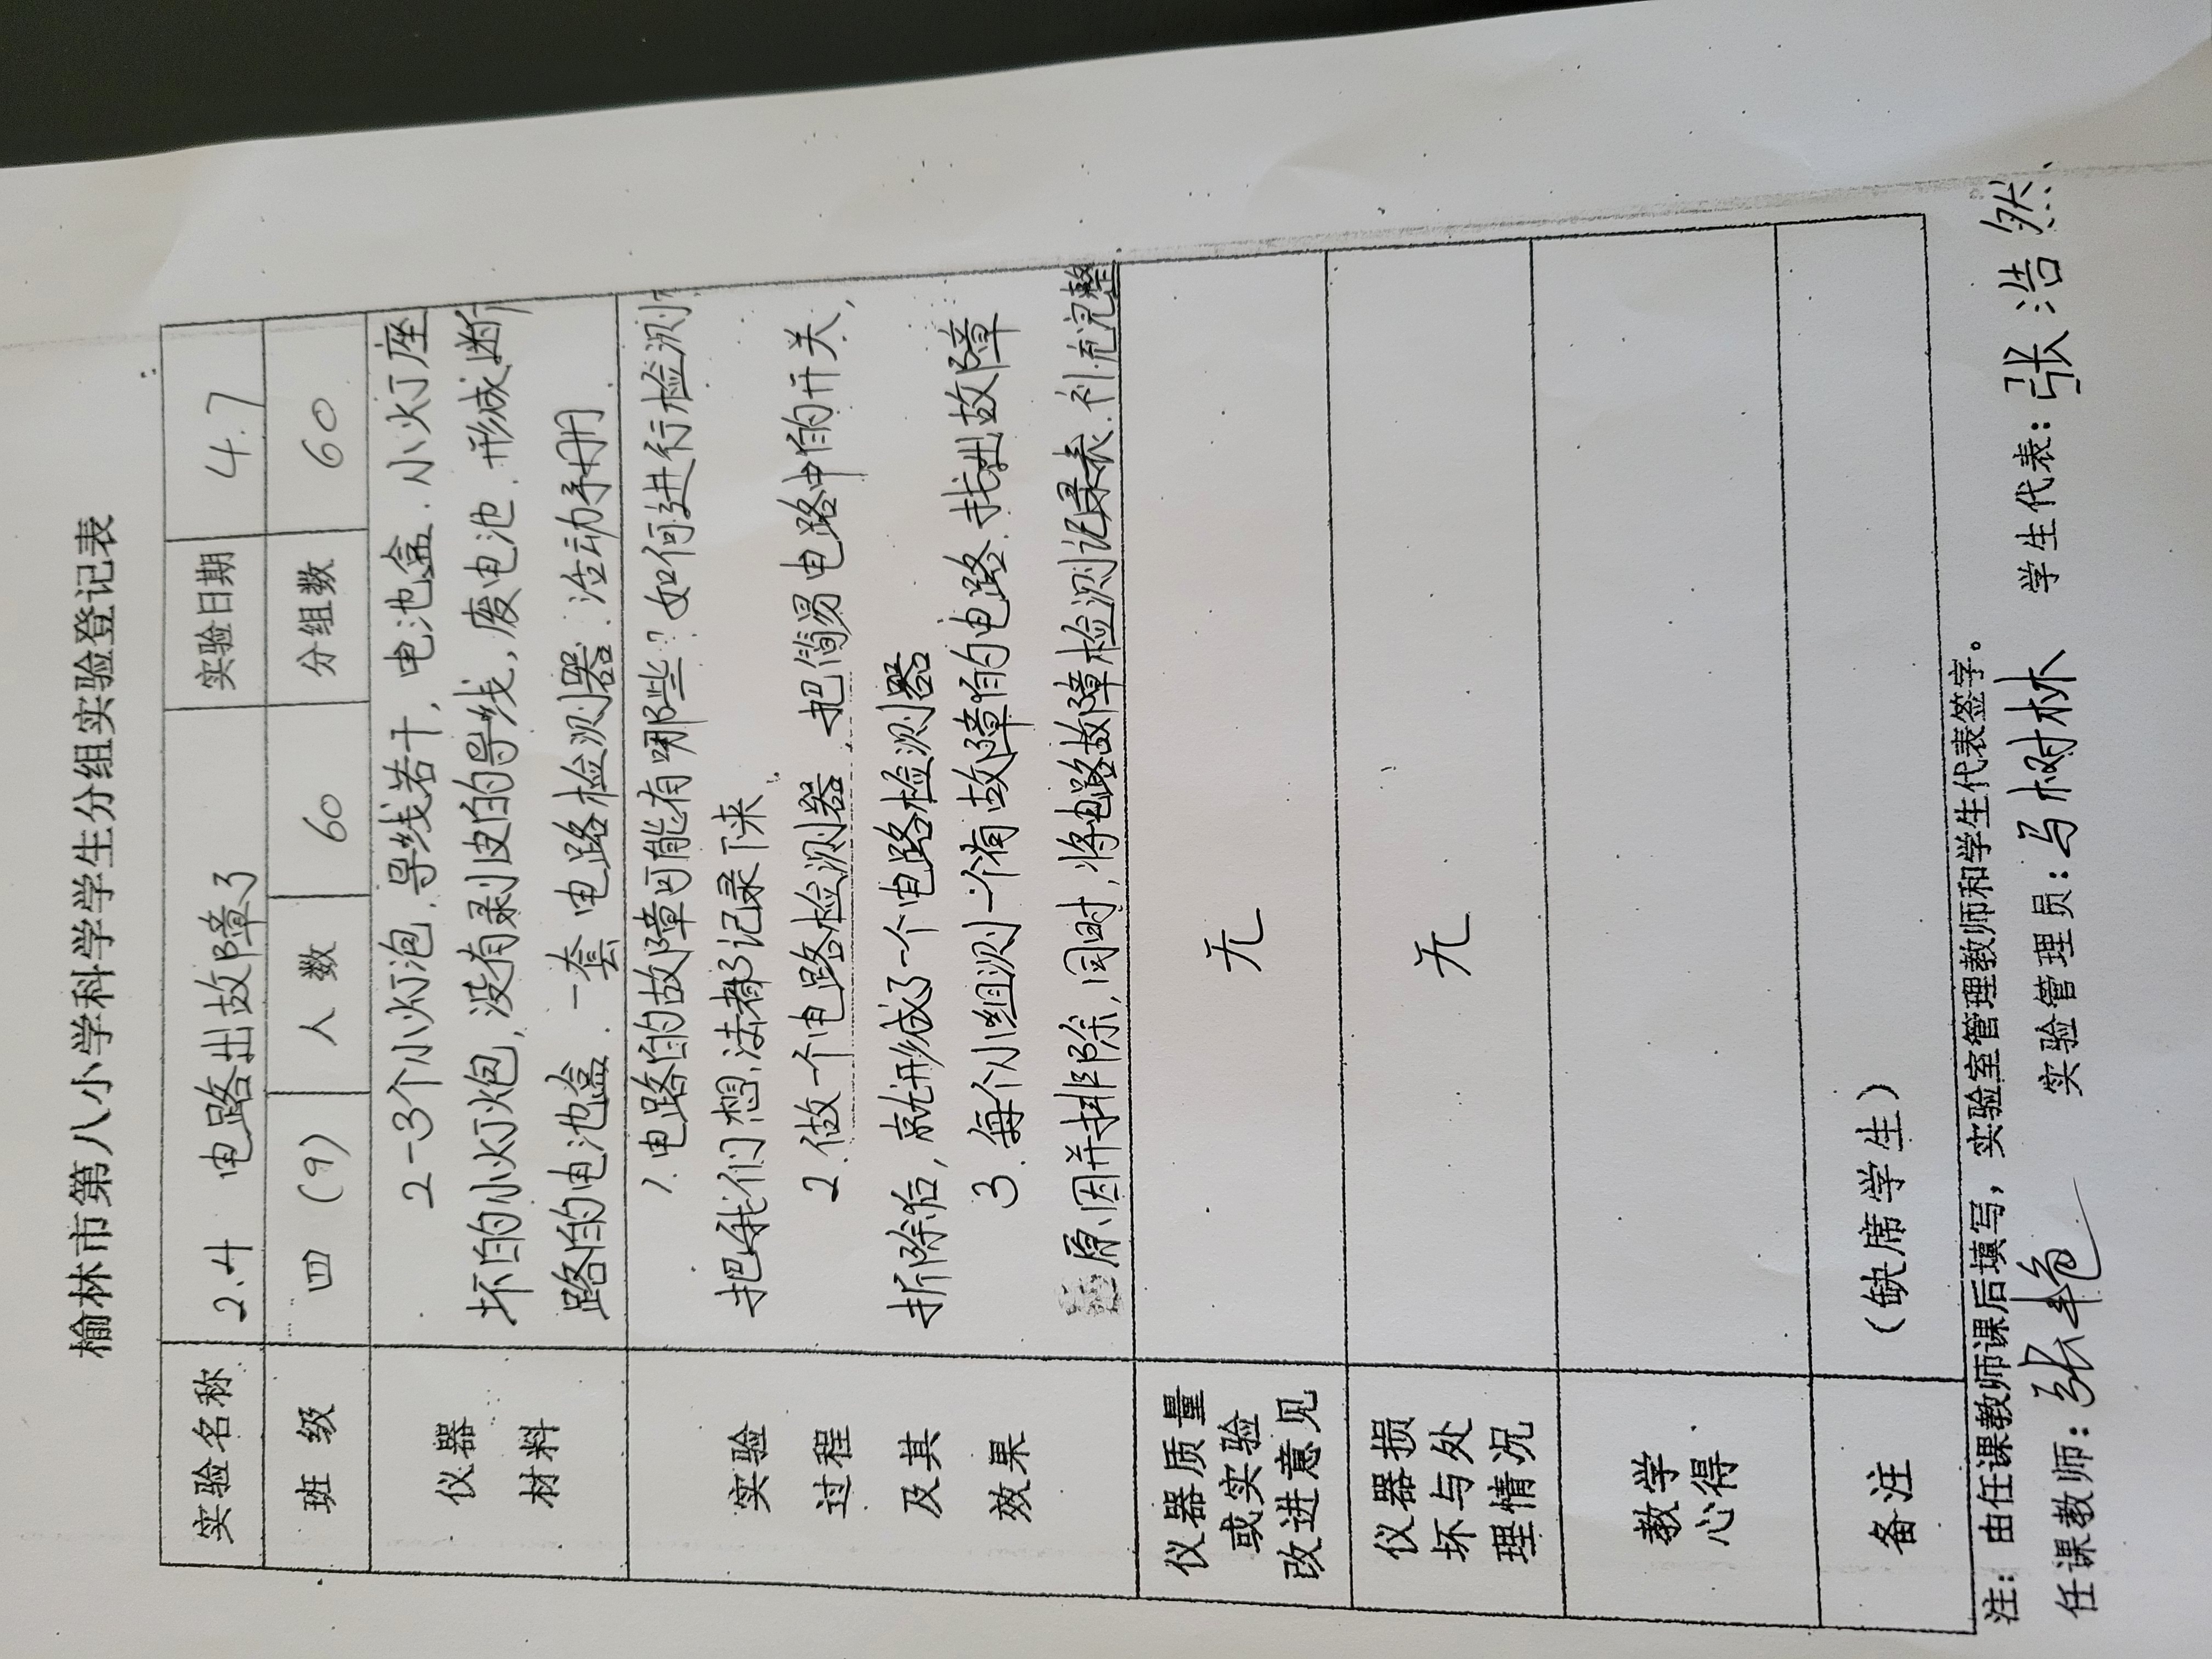 榆林市第八小学科学学生分组实验登记表
实验名称 2.4 电路出故障了 实验日期 4.7
班级 四（9） 人数 60 分组数 60
仪器材料
2-3个小灯泡,导线若干,电池盒.小灯座
坏的小灯炮,没有剥皮的导线,废电池.形成断
路的电池盒.一套电路检测器.活动手册
实验过程及其效果
1.电路的故障可能有哪些?如何进行检测?
把我们想法都记录下来
2.做一个电路检测器 把简易电路中的开关,
折除后,就形成了一个电路检测器
3.每个小组测一个有故障的电路.找出故障
原因并排除,同时,将电路故障检测记录表.补充完整
仪器质量或实验改进意见 无
仪器损坏与处理情况 无
教学心得
备注 （缺席学生）
注：由任课教师课后填写，实验室管理教师和学生代表签字。
任课教师：张艳 实验管理员：马树林 学生代表：张浩然.